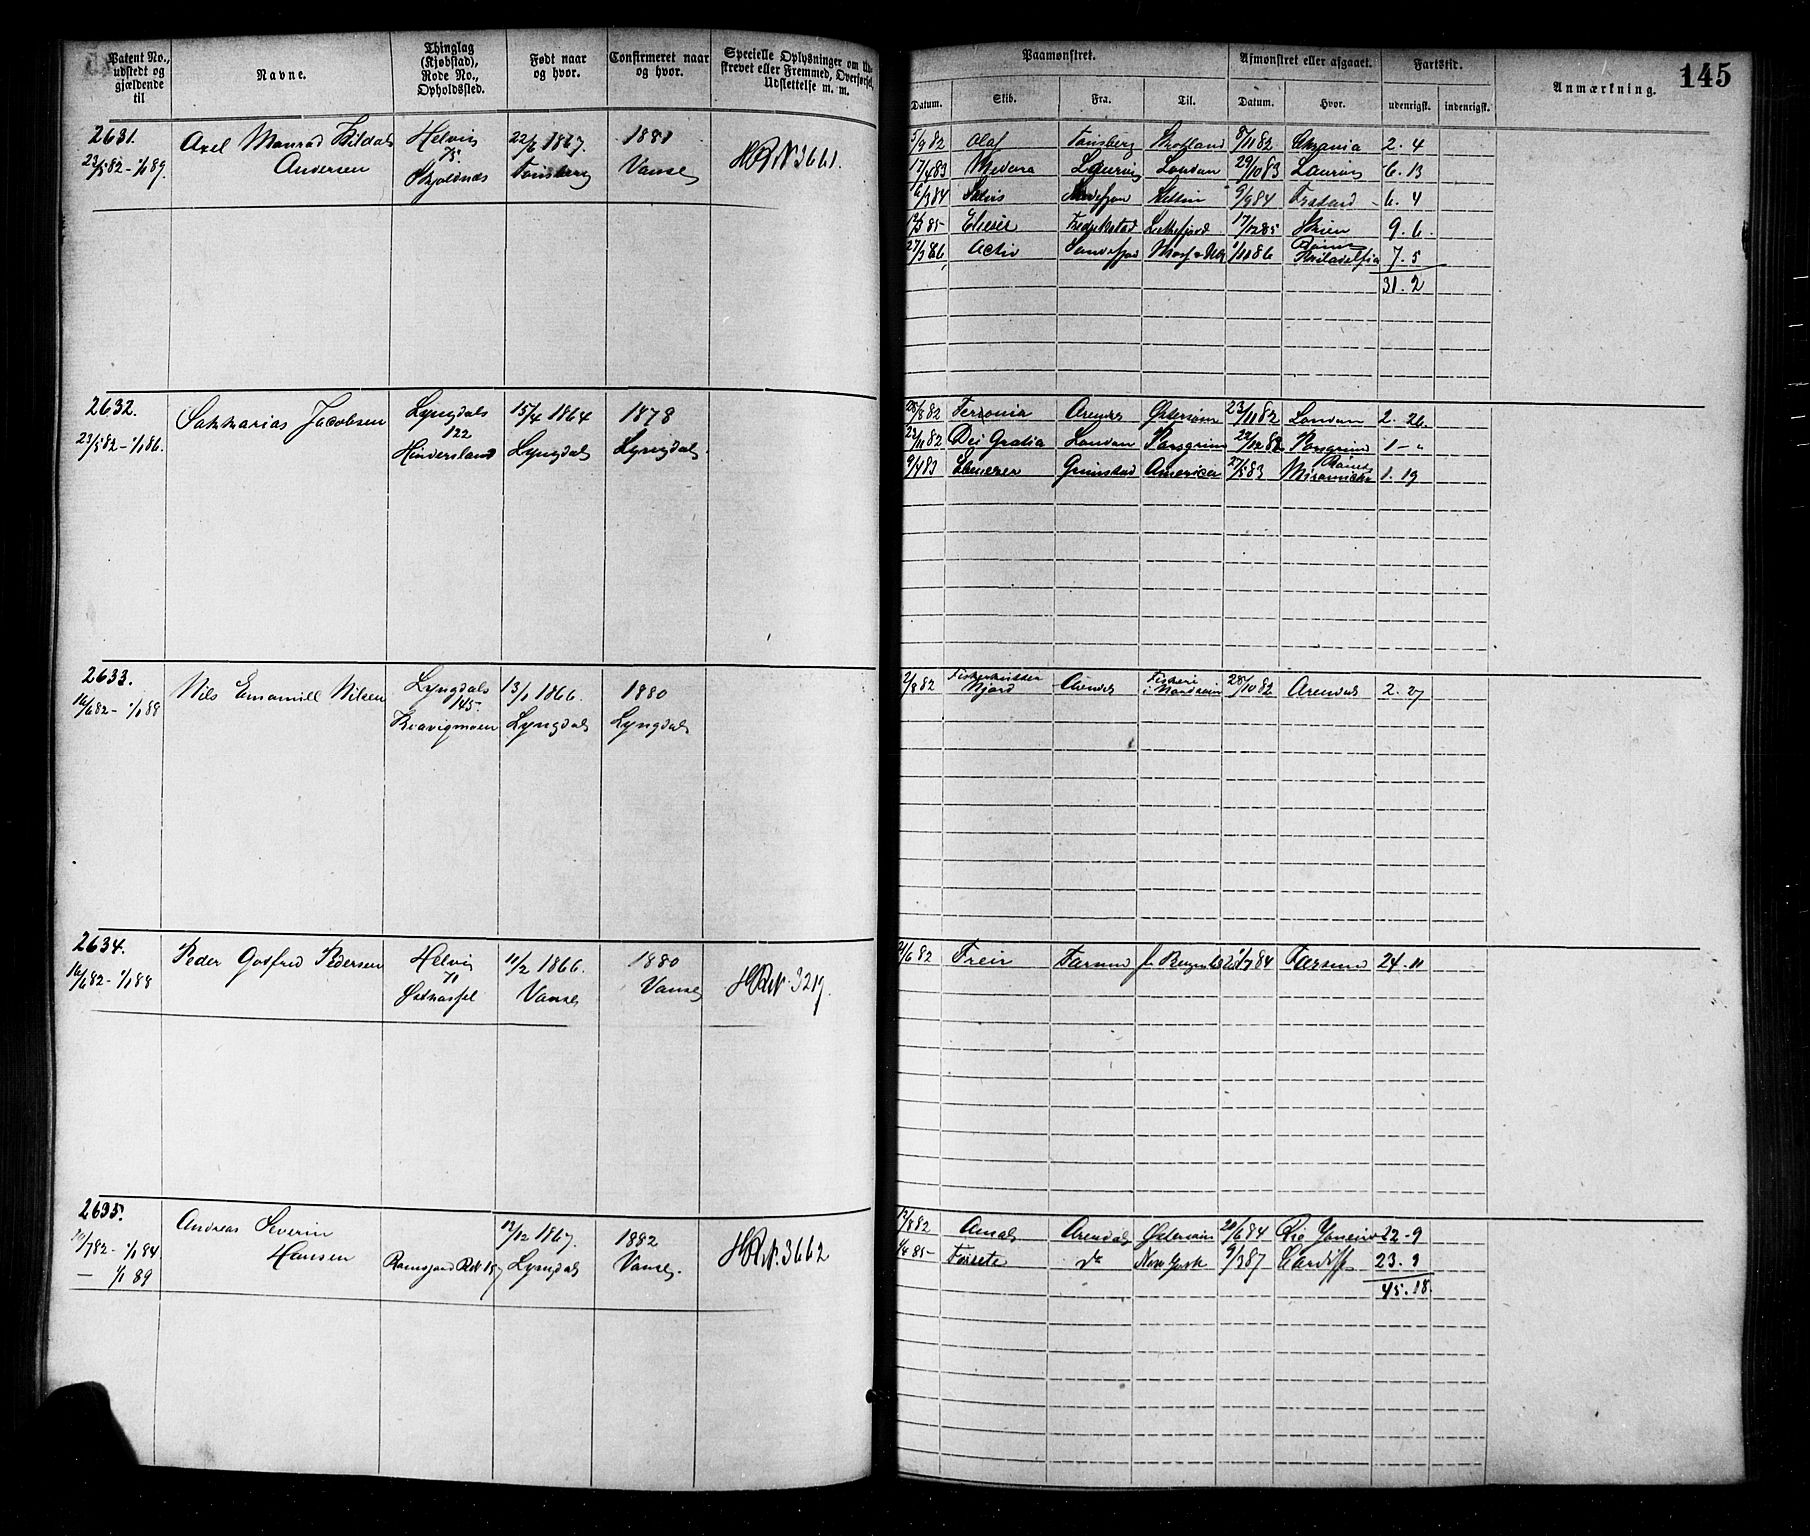 Patent No., udstedt og gjældende til
Navne.
Thinglag (Kjøbstad), Rode No., Opholdssted.
Født naar og hvor.
Confirmeret naar og hvor.
Specielle Oplysninger om
strevet eller Fremmed, Overførsel,
Udslettelse m. m.
2631.
23/5 82 - 1/1 89.
Axel Manrad Hildal
Andersen
Helvig
75.
Skjoldnæs
22/6 1867.
Tønsberg
1881
Vanse
HR N 3661.
2632.
23/5 82 - 1/1 86.
Sakkarias Jacobsen
Lyngdals
122
Hindersland
15/4 1864
Lyngdal
1878
Lyngdal
2633.
16/6 82 - 1/1 88
Nils Emaniell Nilsen
Lyngdals
145.
Kvavigmoen
13/1 1866.
Lyngdal
1880
Lyngdal
2634.
16/6 82 - 1/1 88
Peder Godfred Pedersen
Helvig
71
Østhassel
11/2 1866.
Vanse
1880
Vanse
HR N. 3219.
2635.
20/7 82 - 1/1 84
— 1/1 89
Andreas Severin
Hansen
12/12 1867.
Lyngdal
1882
Vanse.
HR N. 3662
145
Paamønstret.
Afmønstret eller afgaaet.
Fartstid.
Anmærkning.
Datum.
Skib.
Fra.
Til.
Datum.
Hvor.
udenrigsk.
indenrigsk.
5/9 82 Olaf Tønsberg Skotland 8/11 82 Chrania 2. 4
17/4 83 Medora Laurvig London 29/10 83 Laurvig 6. 13
6/3 84 Sandefjord Stettin 9/9 84 6. 4
85 Elieser Fredrikstad 17/12 85 Skien 9. 6.
27/3 86 Activ Sandefjord 1/11 86 Philadelfia 7. 5
31. 2
28/8 82 Feronia Arendal Østersøen 23/11 82 London 2. 26.
23/11 82 Dei Gratia London Porsgrund 22/12 82 Porsgrund 1 - "
9/4 83 Ebenezer Grimstad America 27/5 83 Miramichi 1. 19
2/8 82 Fiskerkutter Njord Arendal Fiskeri i Nordsøen 28/10 82 Arendal 2. 27
21/6 82 Freir Farsund 84 Farsund 24. 11
12/8 82 Arendal Østersøen 20/6 84 Rio Janeiro 22 - 9
85 - do New York 9/3 87 Cardiff 23. 9
45. 18.